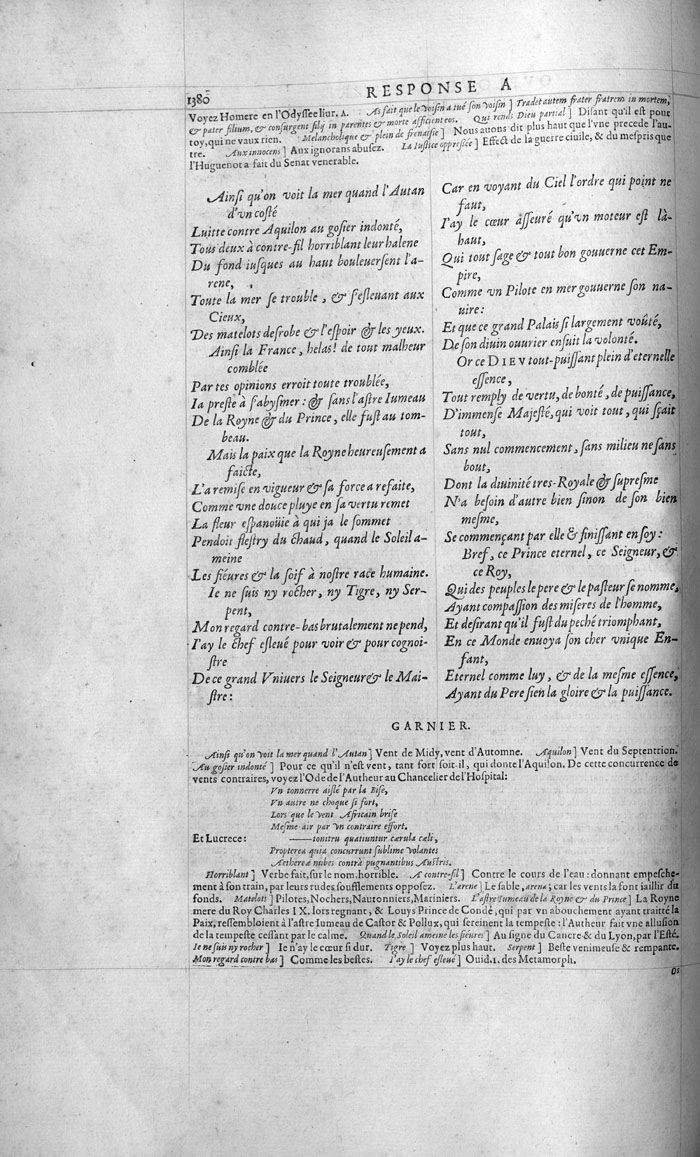 1380
RESPONSE A
Voyez Homere en l'Odyssee liur. 1. As fait que le voisin a tué son voisin ] Tradet autem frater fratrem in mortem,
& pater filium, & consurgent filij in parentes & morte afficient eos. Qui rends Dieu partial ] Disant qu'il est pour
toy, qui ne vaux rien. Melancholique & plein de frenaisie ] Nous auons dit plus haut que l'vne precede l'au-
tre. Aux innocens ] Aux ignorans abusez. La Iustice oppressée ] Effect de la guerre ciuile, & du mespris que
l'Huguenot a fait du Senat venerable.
Ainsi qu'on voit la mer quand l'Autan
d'vn costé
Luitte contre Aquilon au gosier indonté,
Tous deux à contre-fil horriblant leur halene
Du fond iusques au haut bouleuersent l'a-
rene,
Toute la mer se trouble, & s'esleuant aux
Cieux,
Des matelots desrobe & l'espoir & les yeux.
Ainsi la France, helas! de tout malheur
comblée
Par tes opinions erroit toute troublée,
Ia preste à s'abysmer: & sans l'astre Iumeau
De la Royne & du Prince, elle fust au tom-
beau.
Mais la paix que la Royne heureusement a
faicte,
L'a remise en vigueur & sa force a refaite,
Comme vne douce pluye en sa vertu remet
La fleur espanoüie à qui ja le sommet
Pendoit flestry du chaud, quand le Soleil a-
meine
Les fiéures & la soif à nostre race humaine.
Ie ne suis ny rocher, ny Tigre, ny Ser-
pent,
Mon regard contre-bas brutalement ne pend,
I'ay le chef esleué pour voir & pour cognoi-
stre
De ce grand Vniuers le Seigneur & le Mai-
stre:
Car en voyant du Ciel l'ordre qui point ne
faut,
I'ay le cœur asseuré qu'vn moteur est là-
haut,
Qui tout sage & tout bon gouuerne cet Em-
pire,
Comme vn Pilote en mer gouuerne son na-
uire:
Et que ce grand Palais si largement voûté,
De son diuin ouurier ensuit la volonté.
Or ce DIEV tout-puissant plein d'eternelle
essence,
Tout remply de vertu, de bonté, de puissance,
D'immense Majesté, qui voit tout, qui sçait
tout,
Sans nul commencement, sans milieu ne sans
bout,
Dont la diuinité tres-Royale & supresme
N'a besoin d'autre bien sinon de son bien
mesme,
Se commençant par elle & finissant en soy:
Bref, ce Prince eternel, ce Seigneur, &
ce Roy,
Qui des peuples le pere & le pasteur se nomme,
Ayant compassion des miseres de l'homme,
Et desirant qu'il fust du peché triomphant,
En ce Monde enuoya son cher vnique En-
fant,
Eternel comme luy, & de la mesme essence,
Ayant du Pere sien la gloire & la puissance.
GARNIER.
Ainsi qu'on voit la mer quand l'Autan ] Vent de Midy, vent d'Automne. Aquilon ] Vent du Septentrion.
Au gosier indonté ] Pour ce qu'il n'est vent, tant fort soit-il, qui donte l'Aquilon. De cette concurrence de
vents contraires, voyez l'Ode de l'Autheur au Chancelier de l'Hospital:
Vn tonnerre aislé par la Bise,
Vn autre ne choque si fort,
Lors que le vent Africain brise
Mesme air par vn contraire effort.
Et Lucrece: ——tonitru quatiuntur cærula cæli,
Propterea quia concurrunt sublime volantes
Æthereæ nubes contrà pugnantibus Austris.
Horriblant ] Verbe fait, sur le nom, horrible. A contre-fil ] Contre le cours de l'eau: donnant empesche-
ment à son train, par leurs rudes soufflements opposez. L'arene ] Le sable, arena; car les vents la font iaillir du
fonds. Matelots ] Pilotes, Nochers, Nautonniers, Mariniers. L'astre Iumeau de la Royne & du Prince ] La Royne
mere du Roy Charles IX. lors regnant, & Louys Prince de Condé, qui par vn abouchement ayant traitté la
Paix, ressembloient à l'astre Iumeau de Castor & Pollux, qui sereinent la tempeste: l'Autheur fait vne allusion
de la tempeste cessant par le calme. Quand le Soleil ameine les fiéures ] Au signe du Cancre & du Lyon, par l'Esté.
Ie ne suis ny rocher ] Ie n'ay le cœur si dur. Tigre ] Voyez plus haut. Serpent ] Beste venimeuse & rempante.
Mon regard contre bas ] Comme les bestes. I'ay le chef esleué ] Ouid. 1. des Metamorph.
Os